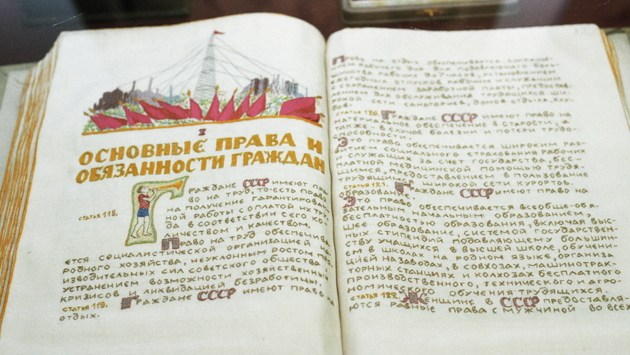 I
ОСНОВНЫЕ ПРАВА И
ОБЯЗАННОСТИ ГРАЖДАН
СТАТЬЯ 118.
ГРАЖДАНЕ СССР ИМЕЮТ ПРА-
ВО НА ТРУД, ТО-ЕСТЬ ПРАВО
НА ПОЛУЧЕНИЕ ГАРАНТИРОВАН-
НОЙ РАБОТЫ С ОПЛАТОЙ ИХ ТРУ-
ДА В СООТВЕТСТВИИ С ЕГО КОЛИ-
ЧЕСТВОМ И КАЧЕСТВОМ.
ПРАВО НА ТРУД ОБЕСПЕЧИВА-
ЕТСЯ СОЦИАЛИСТИЧЕСКОЙ ОРГАНИЗАЦИЕЙ НА-
РОДНОГО ХОЗЯЙСТВА, НЕУКЛОННЫМ РОСТОМ ПРО-
ИЗВОДИТЕЛЬНЫХ СИЛ СОВЕТСКОГО ОБЩЕСТВА,
УСТРАНЕНИЕМ ВОЗМОЖНОСТИ ХОЗЯЙСТВЕННЫХ
КРИЗИСОВ И ЛИКВИДАЦИЕЙ БЕЗРАБОТИЦЫ.
СТАТЬЯ 119. ГРАЖДАНЕ СССР ИМЕЮТ ПРАВО НА
ОТДЫХ.
ПРАВО НА ОТДЫХ ОБЕСПЕЧИВАЕТСЯ
РАБОЧЕГО ДНЯ ДЛЯ ПОДАВЛЯЮЩЕГО БОЛЬ-
ШИНСТВА РАБОЧИХ ДО 7 ЧАСОВ, УСТАНОВЛЕНИЕМ
ЕЖЕГОДНЫХ ОТПУСКОВ РАБОЧИМ И СЛУЖАЩИМ
С СОХРАНЕНИЕМ ЗАРАБОТНОЙ ПЛАТЫ, ПРЕДОСТАВ-
ЛЕНИЕМ ДЛЯ ОБСЛУЖИВАНИЯ ТРУДЯЩИХСЯ ШИРО-
КОЙ СЕТИ САНАТОРИЕВ, ДОМОВ ОТДЫХА, КЛУ-
БОВ.
СТАТЬЯ 120. ГРАЖДАНЕ СССР ИМЕЮТ ПРАВО НА
МАТЕРИАЛЬНОЕ ОБЕСПЕЧЕНИЕ В СТАРОСТИ, А
ТАКЖЕ – В СЛУЧАЕ БОЛЕЗНИ И ПОТЕРИ ТРУДО-
ЭТО ПРАВО ОБЕСПЕЧИВАЕТСЯ ШИРОКИМ РАЗВИ-
ТИЕМ СОЦИАЛЬНОГО СТРАХОВАНИЯ РАБОЧИХ
И СЛУЖАЩИХ ЗА СЧЕТ ГОСУДАРСТВА, БЕС-
ПЛАТНОЙ МЕДИЦИНСКОЙ ПОМОЩЬЮ ТРУДЯ-
ЩИМСЯ, ПРЕДОСТАВЛЕНИЕМ В ПОЛЬЗОВАНИЕ
ТРУДЯЩИМСЯ ШИРОКОЙ СЕТИ КУРОРТОВ.
СТАТЬЯ 121. ГРАЖДАНЕ СССР ИМЕЮТ ПРАВО НА
ОБРАЗОВАНИЕ.
ЭТО ПРАВО ОБЕСПЕЧИВАЕТСЯ ВСЕОБЩЕ-ОБЯ-
ЗАТЕЛЬНЫМ НАЧАЛЬНЫМ ОБРАЗОВАНИЕМ,
БЕСПЛАТНОСТЬЮ ОБРАЗОВАНИЯ, ВКЛЮЧАЯ ВЫС-
ШЕЕ ОБРАЗОВАНИЕ, СИСТЕМОЙ ГОСУДАРСТВЕН-
НЫХ СТИПЕНДИЙ ПОДАВЛЯЮЩЕМУ БОЛЬШИН-
СТВУ УЧАЩИХСЯ В ВЫСШЕЙ ШКОЛЕ, ОБУЧЕНИ-
ЕМ В ШКОЛАХ НА РОДНОМ ЯЗЫКЕ, ОРГАНИЗА-
ЦИЕЙ НА ЗАВОДАХ, В СОВХОЗАХ, МАШИНОТРАК-
ТОРНЫХ СТАНЦИЯХ И КОЛХОЗАХ БЕСПЛАТНОГО
ПРОИЗВОДСТВЕННОГО, ТЕХНИЧЕСКОГО И АГРО-
НОМИЧЕСКОГО ОБУЧЕНИЯ ТРУДЯЩИХСЯ.
СТАТЬЯ 122. ЖЕНЩИНЕ В СССР ПРЕДОСТАВЛЯ-
ЮТСЯ РАВНЫЕ ПРАВА С МУЖЧИНОЙ ВО ВСЕХ